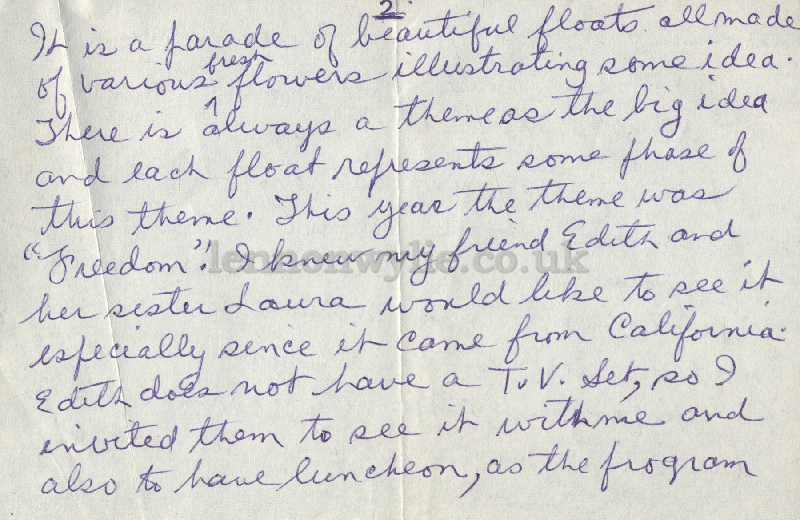 2
It is a parade of beautiful floats all made
of various fresh flowers illustrating some idea.
There is always a theme as the big idea
and each float represents some phase of
this theme. This year the theme was
"Freedom". I knew my friend Edith and
her sister Laura would like to see it
especially since it came from California.
Edith does not have a T.V. Set, so I
invited them to see it with me and
also to have luncheon, as the program
lennonwylie.co.uk